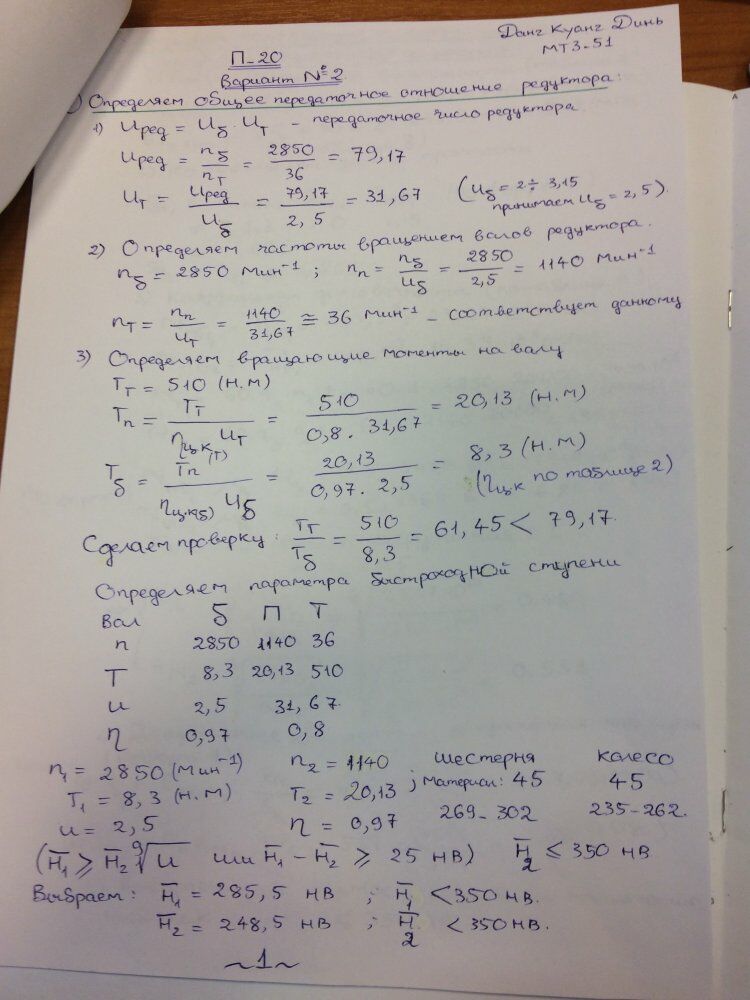 Данг Куанг Динь
МТ3-51
П-20
Вариант №2
Определяем общее передаточное отношение редуктора:
1) Uред = Uб · Uт - передаточное число редуктора
Uред = nб/nт = 2850/36 = 79,17
Uт = Uред/Uб = 79,17/2,5 = 31,67 (Uб = 2 ÷ 3,15
принимаем Uб = 2,5).
2) Определяем частоты вращением валов редуктора.
nб = 2850 мин⁻¹ ; nп = nб/uб = 2850/2,5 = 1140 мин⁻¹
nт = nп/uт = 1140/31,67 ≅ 36 мин⁻¹ - соответствует данному
3) Определяем вращающие моменты на валу
Tт = 510 (н.м)
Tп = Tт/(ηцк(т) Uт) = 510/(0,8 · 31,67) = 20,13 (н.м)
Tб = Tп/(ηцк(б) Uб) = 20,13/(0,97 · 2,5) = 8,3 (н.м)
(ηцк по таблице 2)
Сделаем проверку: Tт/Tб = 510/8,3 = 61,45 < 79,17.
Определяем параметра быстроходной ступени
Вал Б П Т
n 2850 1140 36
T 8,3 20,13 510
u 2,5 31,67
η 0,97 0,8
n₁ = 2850 (мин⁻¹) n₂ = 1140 шестерня колесо
T₁ = 8,3 (н.м) T₂ = 20,13 ; материал: 45 45
u = 2,5 η = 0,97 269-302 235-262.
(H̅₁ ≥ H̅₂ ⁹√u или H̅₁ - H̅₂ ≥ 25 нв) H̅₂ ≤ 350 нв
Выбраем: H̅₁ = 285,5 нв ; H̅₁ < 350 нв.
H̅₂ = 248,5 нв ; H̅₂ < 350 нв.
~1~